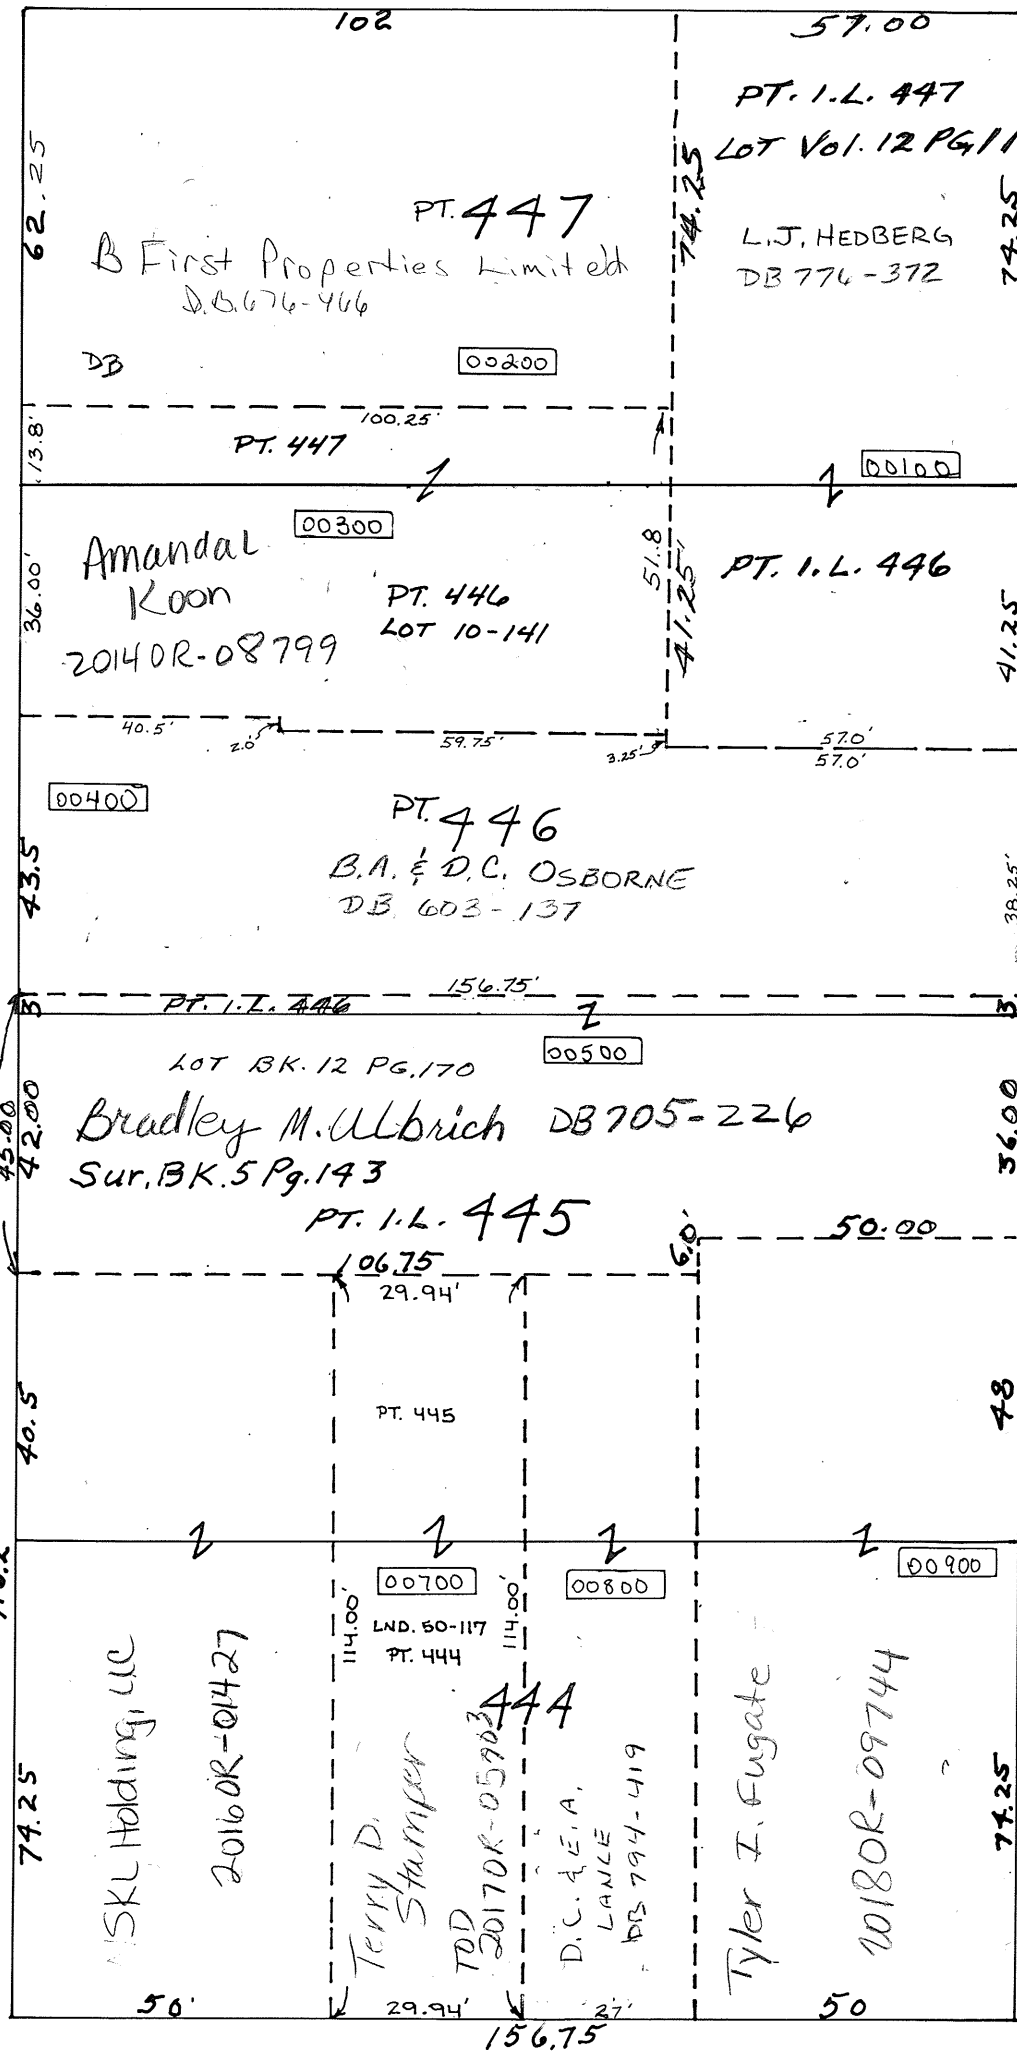 102
57.00
PT. I.L. 447
LOT Vol. 12 PG,11
62.25
74.25
74.25
PT. 447
B First Properties Limited
D.B. 676-466
L.J. HEDBERG
DB 776-372
DB
00200
100.25'
13.8'
PT. 447
00100
00300
Amanda L
Koon
2014OR-08799
36.00'
PT. 446
LOT 10-141
51.8
41.25'
PT. I.L. 446
41.25
40.5'
2.0'
59.75'
3.25'
57.0'
57.0'
00400
PT. 446
B.A. & D.C. OSBORNE
DB 603-137
43.5
38.25'
156.75'
3
PT. I.L. 446
3.
00500
LOT BK. 12 PG. 170
Bradley M. Ulbrich DB 705-226
Sur. BK. 5 Pg. 143
45.00
42.00
36.00
PT. I.L. 445
6.0'
50.00
106.75
29.94'
40.5
PT. 445
48
00700
00800
00900
114.00'
LND. 50-117
PT. 444
114.00'
444
SKL Holding, LLC
2016OR-01427
Terry D.
Stamper
TOD
2017OR-05903
D.C. & E.A.
LANCE
DB 794-419
Tyler I. Fugate
2018OR-09744
74.25
74.25
50'
29.94'
27'
50
156.75